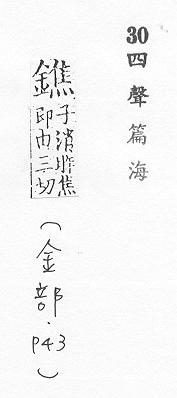 30四聲篇海
鐎子消昨焦
即由三切
(金部.P43)